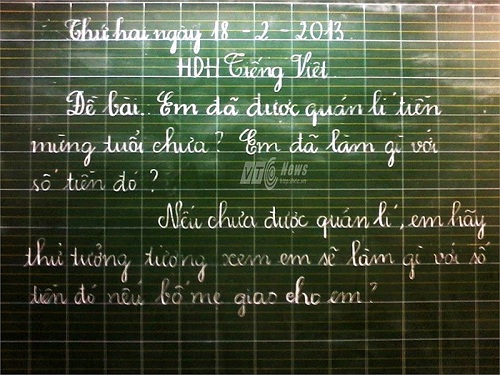 Thứ hai ngày 18 - 2 - 2013.
HDH Tiếng Việt.
Đề bài: Em đã được quản lí tiền
mừng tuổi chưa? Em đã làm gì với
số tiền đó?
VTC News
http://vtc.vn
Nếu chưa được quản lí, em hãy
thử tưởng tượng xem em sẽ làm gì với số
tiền đó nếu bố mẹ giao cho em?